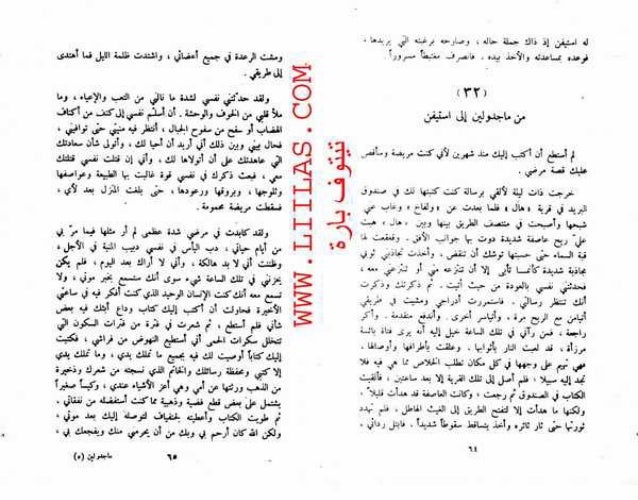 له استيفن إذ ذاك جملة حاله ، وصارحه برغبته التي يريدها ،
فوعده بمساعدته والأخذ بيده . فانصرف مغتبطاً مسروراً
(٣٢)
من ماجدولين إلى استيفن
لم أستطع أن أكتب إليك منذ شهرين لأني كنت مريضة وسأقص
عليك قصة مرضي .
خرجت ذات ليلة لألقي برسالة كنت كتبتها لك في صندوق
البريد في قرية « هال » فلما بعدت عن « ولفاخ » وغاب عني
شبحها وأصبحت في منتصف الطريق بينها وبين « هال » هبت
عليّ ريح عاصفة شديدة دوت بها جوانب الأفق . وقعقعت لها
قبة السماء حتى حسبتها توشك أن تنقض . وأخذت تجاذبني ثوبي
مجاذبة شديدة كأنما تأبى إلا أن تنتزعه مني أو تنتزعني معه ،
فحدثتني نفسي بالعودة من حيث أتيت . ثم ذكرتك وذكرت
أنك تنتظر رسالتي . فاستمررت أدراجي ومشيت في طريقي
أتيامن مع الريح مرة . وأتياسر أخرى . وأندفع متقدمة . وأكر
راجعة ، فمن رآني في تلك الساعة خيل إليه أنه يرى فتاة بائسة
مرزأة ، قد لعبت النار بأثوابها . وعلقت بأطرافها وأوصالها .
فهي تهيم على وجهها في كل مكان تطلب الخلاص مما هي فيه فلا
تجد إليه سبيلا ، فلم أصل إلى تلك القرية إلا بعد ساعتين ، فألقيت
الكتاب في الصندوق ثم رجعت ، وكانت العاصفة قد هدأت قليلاً .
ولكنها ما هدأت إلا لتفتح الطريق إلى الغيث الهاطل . فلم تهدد
ثورتها حتى ثار ثائره وأخذ يتساقط سقوطاً شديداً . فابتل ردائي .
٦٤
WWW.LIILAS.COM
تيتوف بارة
ومشت الرعدة في جميع أعضائي ، واشتدت ظلمة الليل فما أهتدى
إلى طريقي .
ولقد حدثتني نفسي لشدة ما نالني من التعب والإعياء ، وما
ملأ قلبي من الخوف والوحشة . أن أسلم نفسي إلى كنف من أكناف
الهضاب أو سفح من سفوح الجبال ، أنتظر فيه منيتي حتى توافيني ،
فحال بيني وبين ذلك أني أريد أن أحيا لك ، وأتولى شأن سعادتك
التي عاهدتك على أن أتولاها لك ، وأني إن قتلت نفسي قتلتك
معي ، فبعث ذكرك في نفسي قوة غالبت بها الطبيعة وعواصفها
وثلوجها ، وبروقها ورعودها ، حتى بلغت المنزل بعد لأي ،
فسقطت مريضة محمومة .
ولقد كابدت في مرضي شدة عظمى لم أر مثلها فيما مرّ بي
من أيام حياتي ، دب اليأس في نفسي دبيب المنية في الأجل ،
وظننت أني لا بد هالكة ، وأني لا أراك بعد اليوم ، فلم يكن
يحزنني في تلك الساعة شيء سوى أنك ستسمع بخبر موتي ، ولا
تسمع معه أنك كنت الإنسان الوحيد الذي كنت أفكر فيه في ساعتي
الأخيرة فحاولت أن أكتب إليك كتاب وداع أبثك فيه بعض
شأني فلم أستطع ، ثم شعرت في فترة من فترات السكون التي
تتخلل سكرات الحمى أني أستطيع النهوض من فراشي ، فكتبت
إليك كتاباً أوصيت لك فيه بجميع ما تملك يدي ، وما تملك يدي
إلا كتبي ومحفظة رسائلك والخاتم الذي نسجته من شعرك وذخيرة
من الذهب ورثتها عن أمي وهي أعز الأشياء عندي ، وكيساً صغيراً
يشتمل على بعض قطع فضية وذهبية مما كنت أستفضله من نفقاتي .
ثم طويت الكتاب وأعطيته لجنفياف لتوصله إليك بعد موتي ،
ولكن الله كان أرحم بي وبك من أن يحرمني منك ويفجعك بي ،
٦٥
ماجدولين (٥)